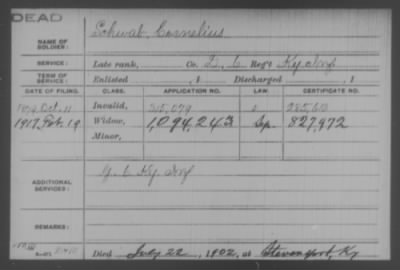 DEAD
NAME OF SOLDIER: Schwab, Cornelius
SERVICE: Late rank, Co. D, 6 Reg't Ky Inf
TERM OF SERVICE: Enlisted , 1 Discharged , 1
DATE OF FILING. CLASS. APPLICATION NO. LAW. CERTIFICATE NO.
Oct. 11 Invalid, 315,079
1917, Feb. 19 Widow, 1,094,243 827,972
Minor,
ADDITIONAL SERVICES: Ky. Inf
REMARKS:
Died July 22, 1902, at Stevensport, Ky